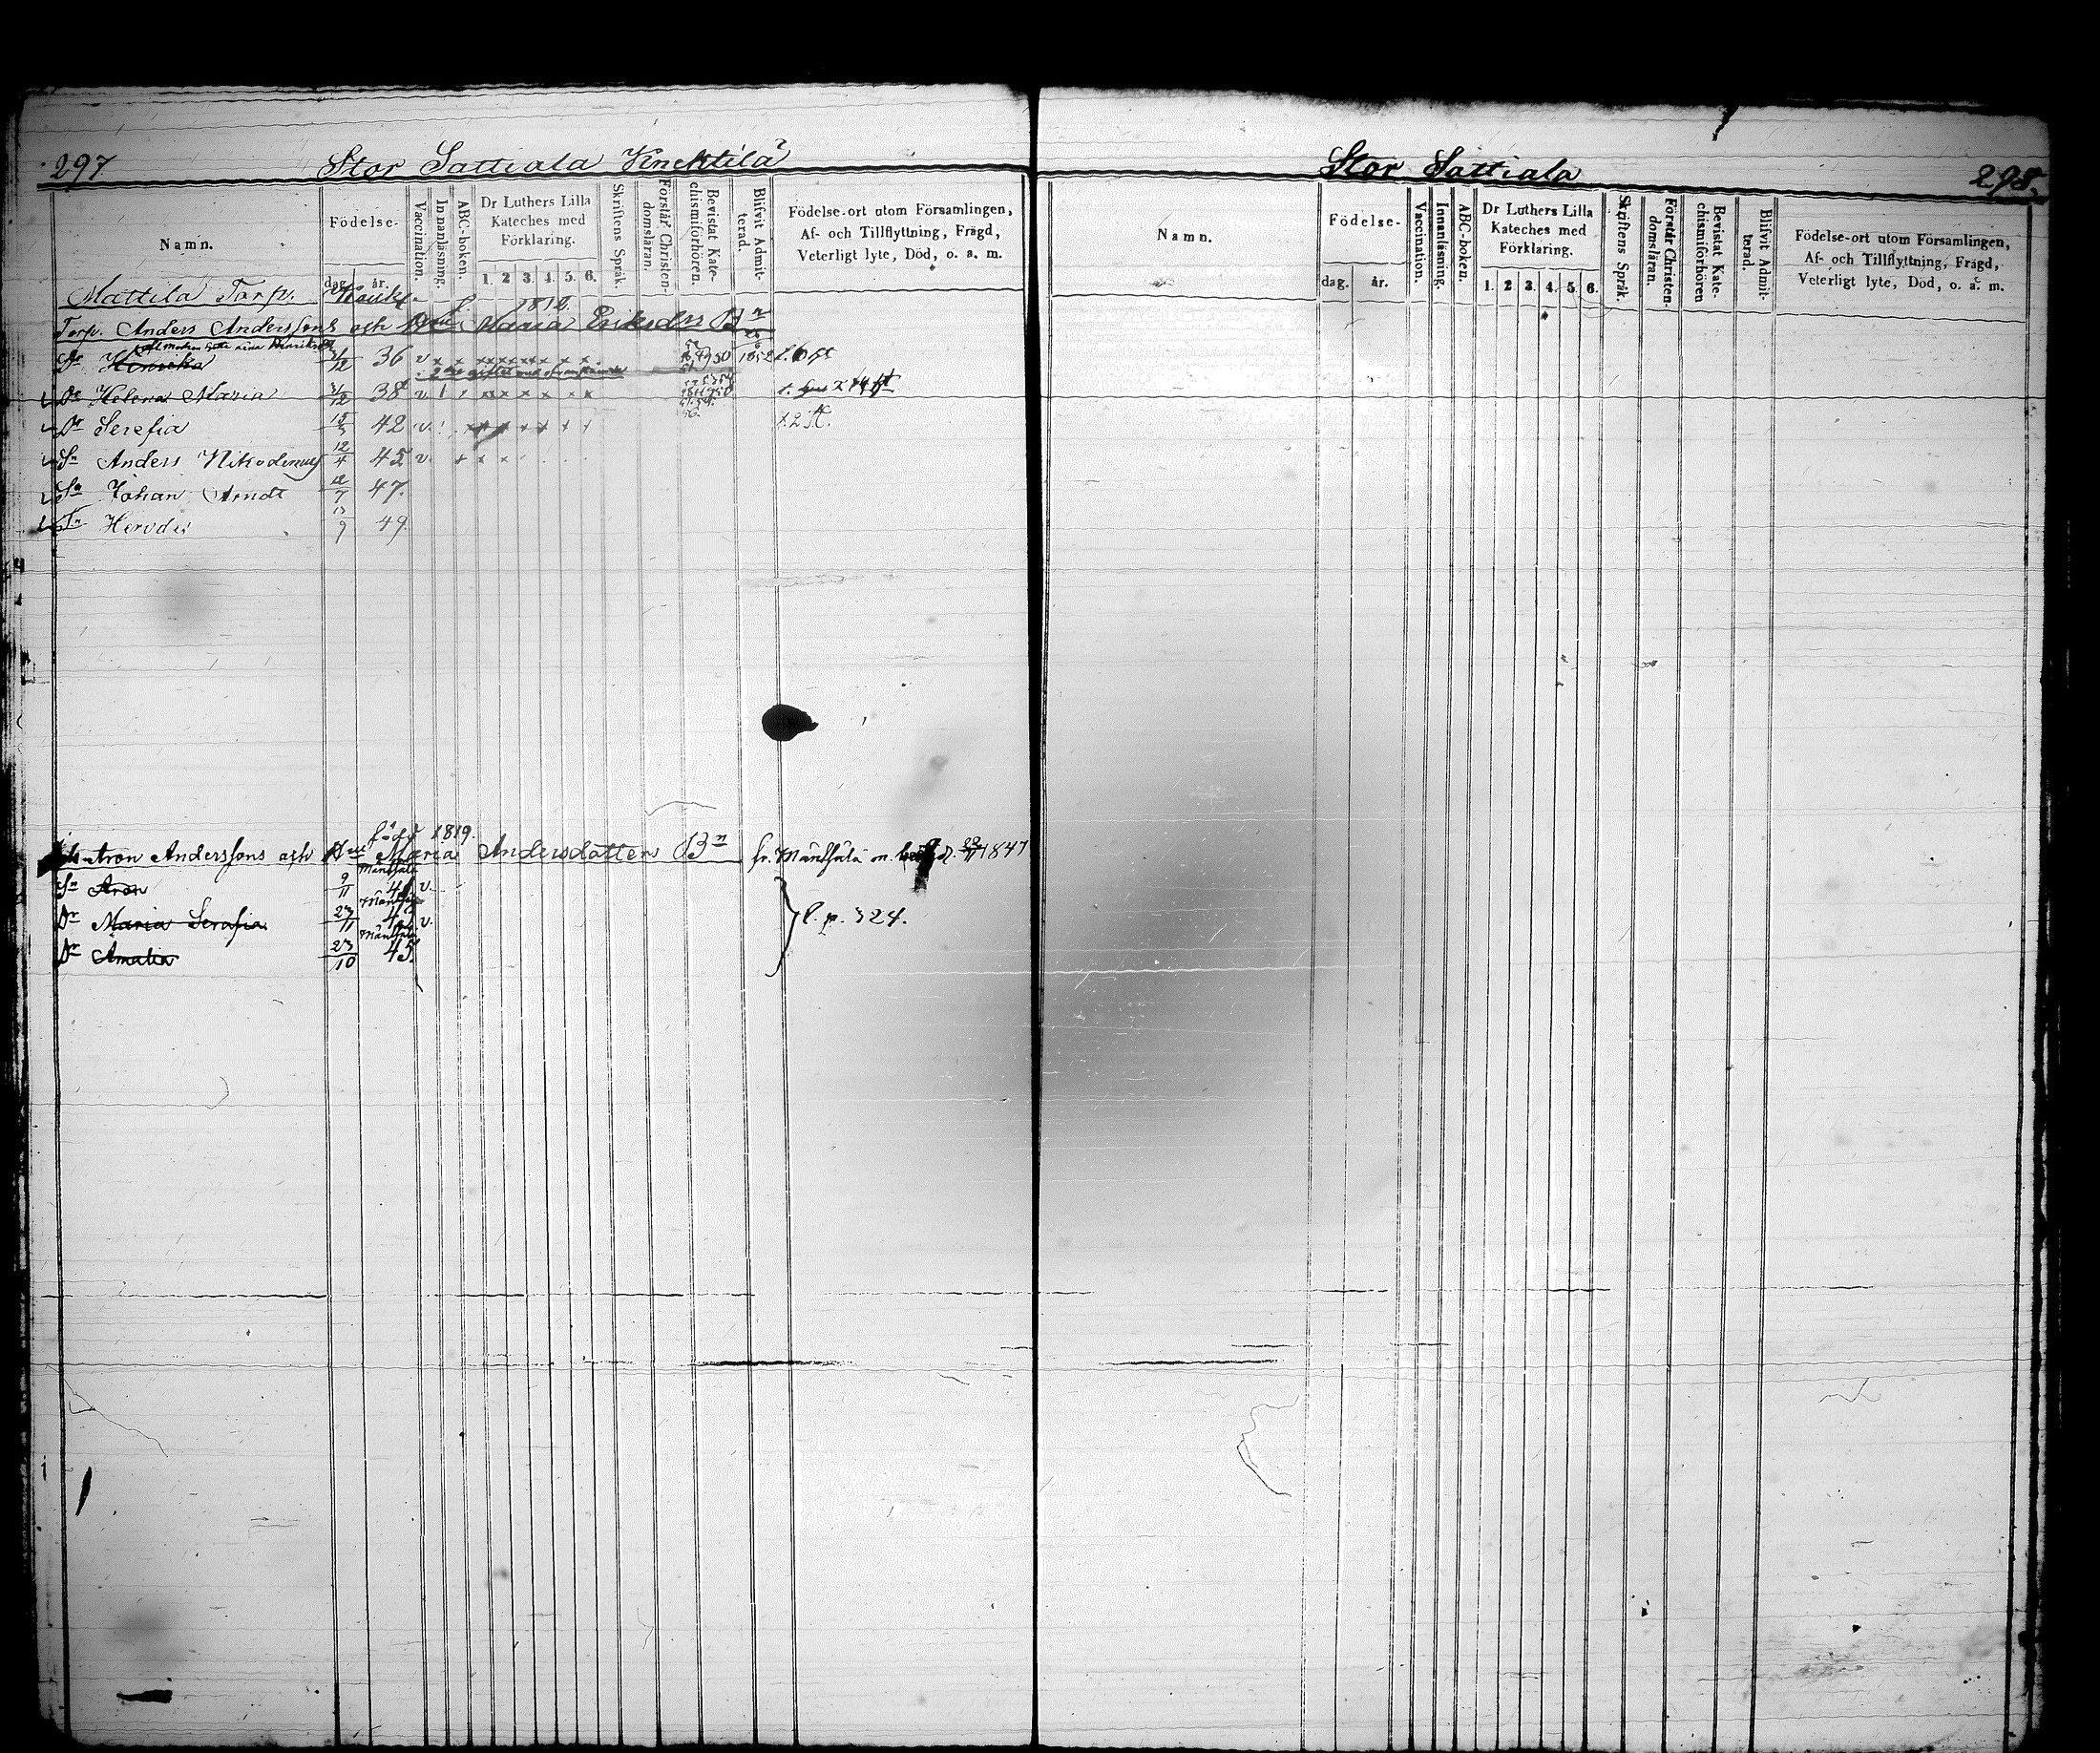 297 Stor Sattiala Knektila
Namn.
Födelse-
dag. år.
Vaccination.
Innanläsning.
ABC-boken.
Dr Luthers Lilla Kateches med Förklaring.
1. 2 3. 4. 5. 6.
Skriftens Språk.
Förstår Christendomsläran.
Bevistat Katechismiförhören.
Blifvit Admitterad.
Födelse-ort utom Församlingen,
Af- och Tillflyttning, Frägd,
Veterligt lyte, Död, o. a. m.
Mattila Torp.
f. 1812.
Torp. Anders Anderssons och Hu Maria Eriksdrs Bn
Dr Henrika 3/12 36 v 1852
Dr Helena Maria 3/12 38 v
Dr Serefia 15/3 42 v.
Sn Anders Nikodemus 12/4 45 v.
Sn Johan Arndt 12/7 47.
Sn Herodes 13/9 49.
född 1819.
Aron Anderssons och Hus Maria Andersdotters Bn fr. Mäntsälä 1847
Sn Aron 9/11 Mäntsälä v.
Dr Maria Serafia 23/11 Mäntsälä v.
Dr Amalia 23/10 Mäntsälä 45.
l. p. 324.
Stor Sattiala 298.
Namn.
Födelse-
dag. år.
Vaccination.
Innanläsning.
ABC-boken.
Dr Luthers Lilla Kateches med Förklaring.
1. 2. 3. 4. 5. 6.
Skriftens Språk.
Förstår Christendomsläran.
Bevistat Katechismiförhören
Blifvit Admitterad.
Födelse-ort utom Församlingen,
Af- och Tillflyttning, Frägd,
Veterligt lyte, Död, o. a. m.